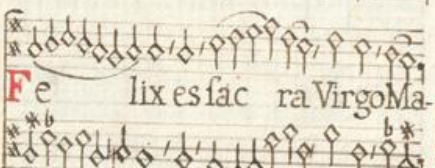 Fe lix es sac ra Virgo Ma-